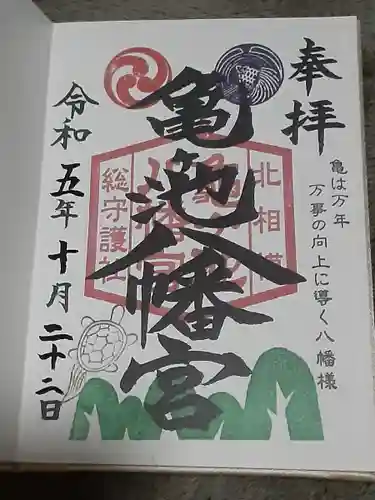 奉拝
亀は万年
万事の向上に導く八幡様
北相模
亀池八幡宮
総守護社
令和五年十月二十二日